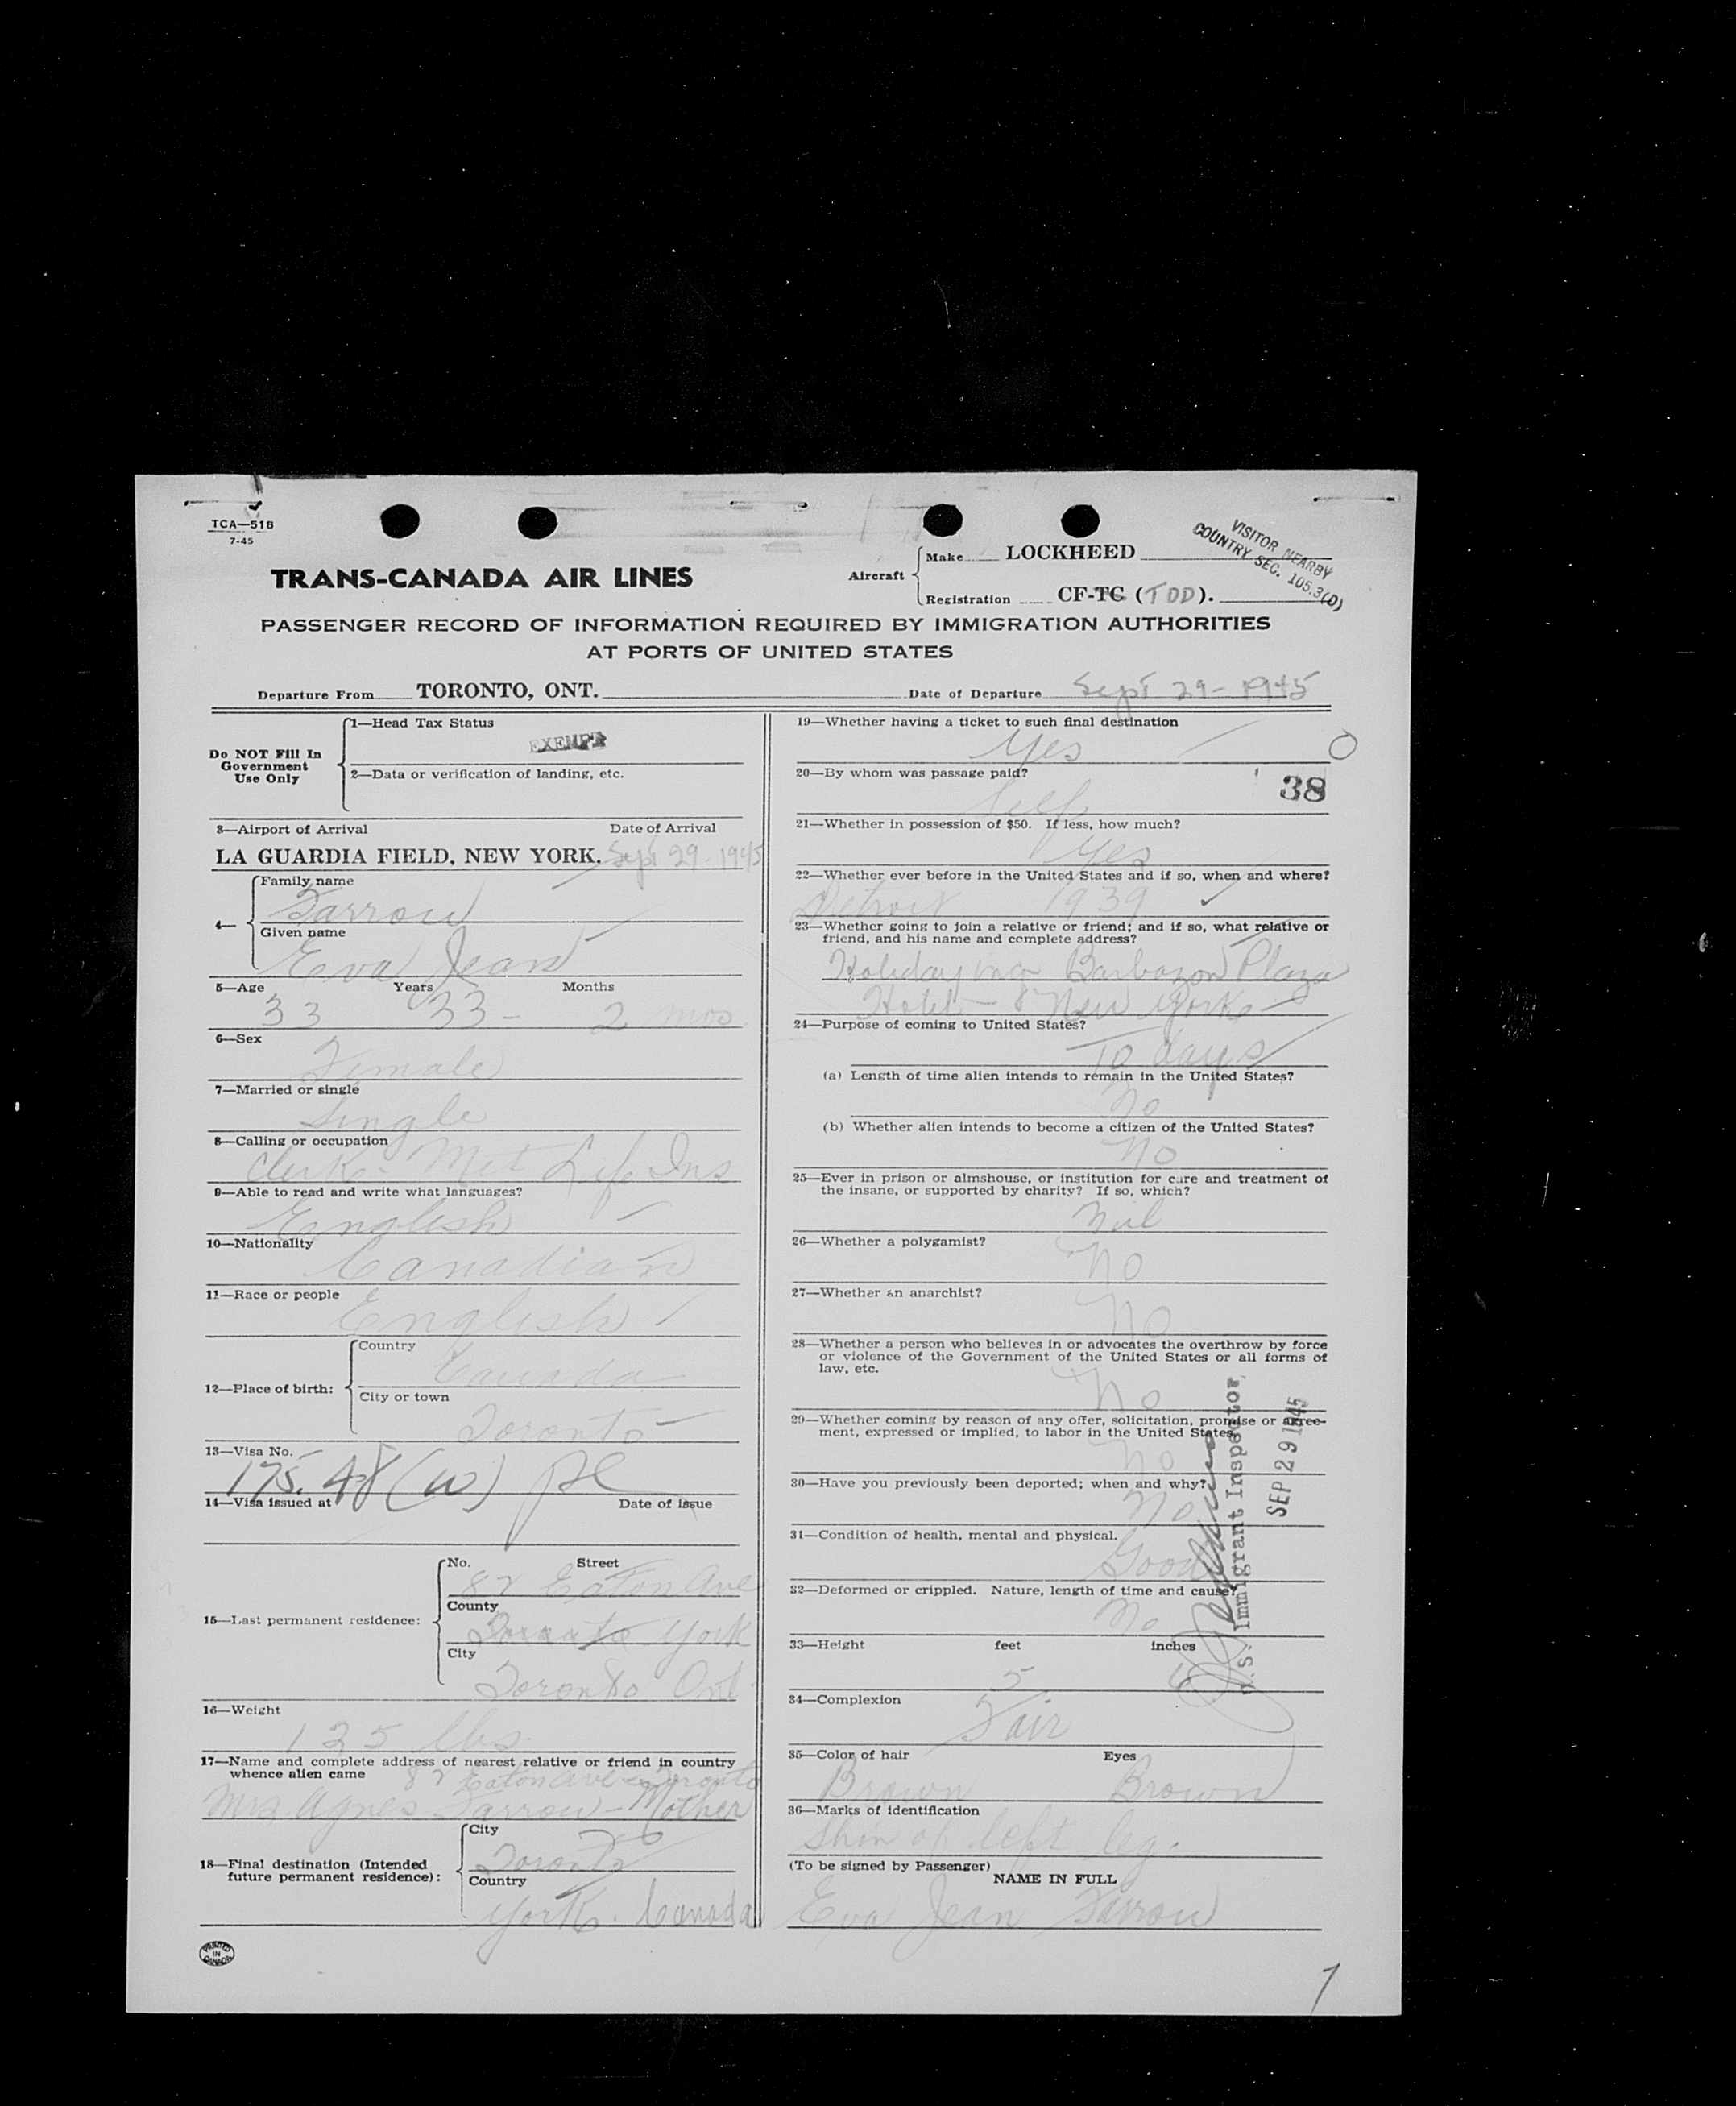 TCA—518
7-45
TRANS-CANADA AIR LINES
Aircraft
Make LOCKHEED
Registration CF-TC (TDD).
VISITOR NEARBY
COUNTRY SEC. 105.3(D)
PASSENGER RECORD OF INFORMATION REQUIRED BY IMMIGRATION AUTHORITIES
AT PORTS OF UNITED STATES
Departure From TORONTO, ONT. Date of Departure Sept 29-1945
Do NOT Fill In
Government
Use Only
1—Head Tax Status
EXEMPT
2—Data or verification of landing, etc.
3—Airport of Arrival Date of Arrival
LA GUARDIA FIELD, NEW YORK. Sept 29-1945
4—
Family name
Farrow
Given name
Eva Jean
5—Age Years Months
33 33- 2 mos
6—Sex
Female
7—Married or single
Single
8—Calling or occupation
Clerk - Met Life Ins
9—Able to read and write what languages?
English
10—Nationality
Canadian
11—Race or people
English
12—Place of birth:
Country
Canada
City or town
Toronto
13—Visa No.
175.48 (W)
14—Visa issued at Date of issue
15—Last permanent residence:
No. Street
87 Eaton Ave
County
Toronto York
City
Toronto Ont
16—Weight
125 lbs
17—Name and complete address of nearest relative or friend in country
whence alien came 87 Eaton Ave - Toronto
Mrs Agnes Farrow - Mother
18—Final destination (Intended
future permanent residence):
City
Toronto
Country
York. Canada
PRINTED
IN
CANADA
19—Whether having a ticket to such final destination
Yes
O
20—By whom was passage paid?
38
Self
21—Whether in possession of $50. If less, how much?
Yes
22—Whether ever before in the United States and if so, when and where?
Detroit 1939
23—Whether going to join a relative or friend; and if so, what relative or
friend, and his name and complete address?
Holidaying - Barbazon Plaza
Hotel - New York
24—Purpose of coming to United States?
10 days
(a) Length of time alien intends to remain in the United States?
No
(b) Whether alien intends to become a citizen of the United States?
No
25—Ever in prison or almshouse, or institution for care and treatment of
the insane, or supported by charity? If so, which?
Nil
26—Whether a polygamist?
No
27—Whether an anarchist?
No
28—Whether a person who believes in or advocates the overthrow by force
or violence of the Government of the United States or all forms of
law, etc.
No
29—Whether coming by reason of any offer, solicitation, promise or agree-
ment, expressed or implied, to labor in the United States.
No
30—Have you previously been deported; when and why?
No
31—Condition of health, mental and physical.
Good
32—Deformed or crippled. Nature, length of time and cause?
No
33—Height feet inches
5 6
34—Complexion
Fair
35—Color of hair Eyes
Brown Brown
36—Marks of identification
Shin of left leg.
(To be signed by Passenger)
NAME IN FULL
Eva Jean Farrow
U.S. Immigrant Inspector
SEP 29 1945
1